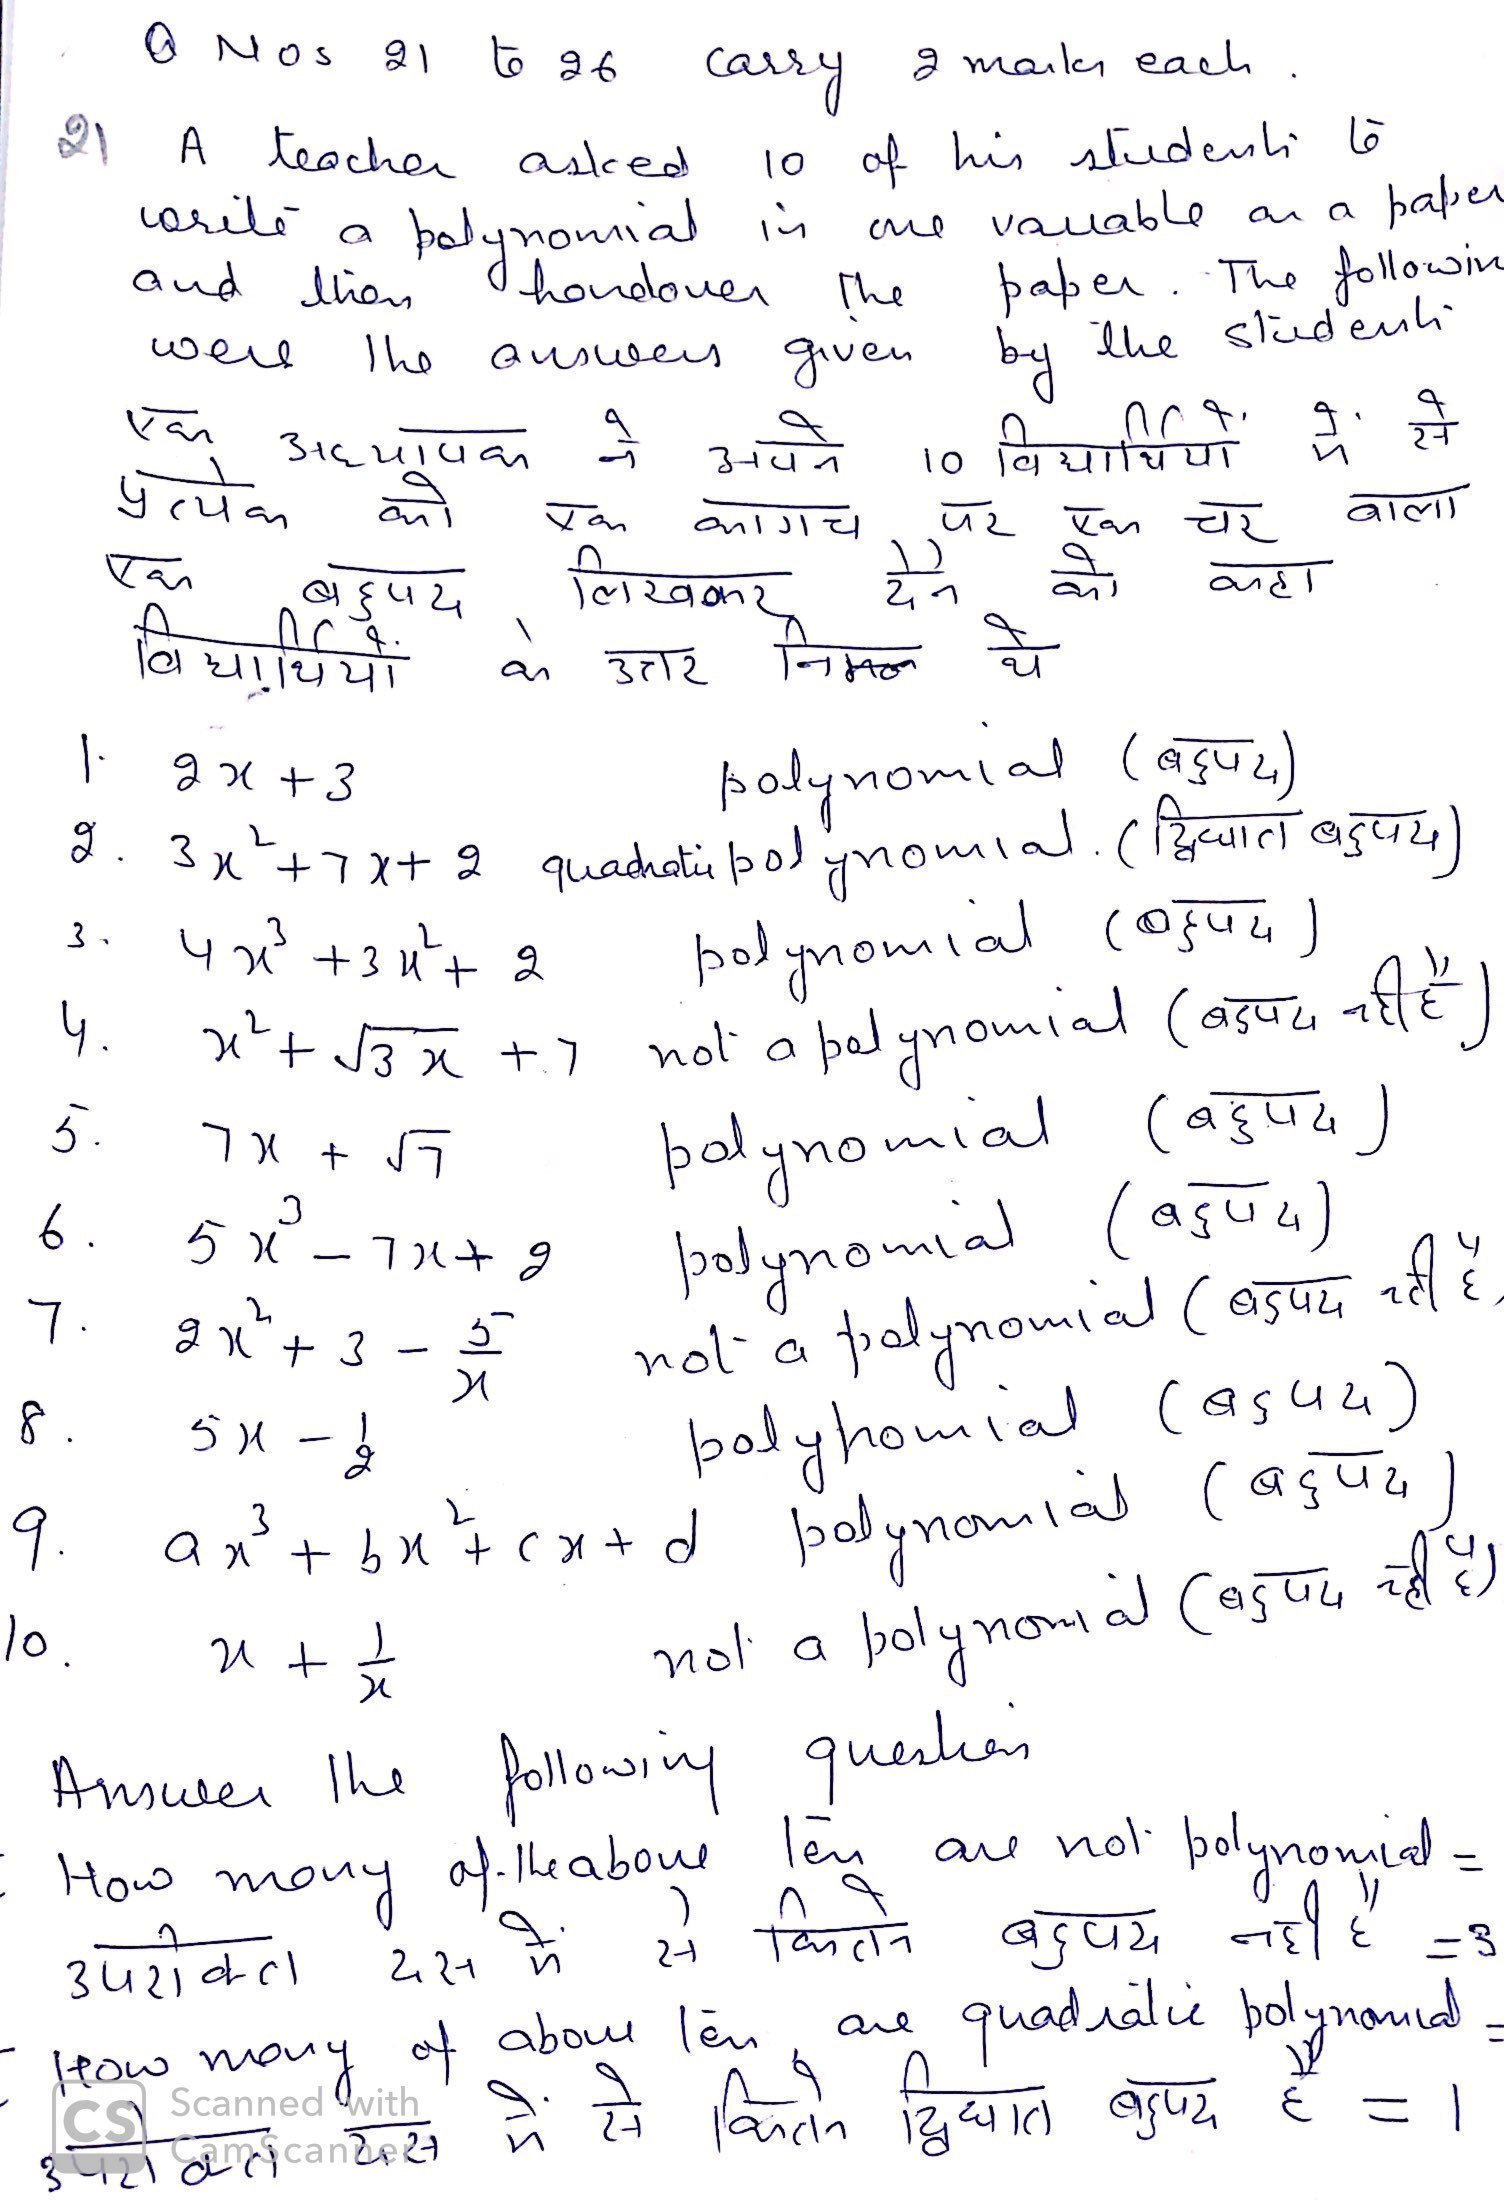 Q Nos 21 to 26 carry 2 marks each.
21 A teacher asked 10 of his students to
write a polynomial in one variable on a paper
and then handover the paper. The followin
were the answers given by the students
एक अध्यापक ने अपने 10 विद्यार्थियों में से
प्रत्येक को एक कागच पर एक चर वाला
एक बहुपद लिखकर देने को कहा
विद्यार्थियों के उत्तर निम्न थे
1. 2x + 3 polynomial (बहुपद)
2. 3x² + 7x + 2 quadratic polynomial. (द्विघात बहुपद)
3. 4x³ + 3x² + 2 polynomial (बहुपद)
4. x² + √3x + 7 not a polynomial (बहुपद नहीं है)
5. 7x + √7 polynomial (बहुपद)
6. 5x³ - 7x + 2 polynomial (बहुपद)
7. 2x² + 3 - 5/x not a polynomial (बहुपद नहीं है
8. 5x - 1/2 polynomial (बहुपद)
9. ax³ + bx² + cx + d polynomial (बहुपद)
10. x + 1/x not a polynomial (बहुपद नहीं है)
Answer the following question
How many of the above ten are not polynomial =
उपरोक्त दस में से कितने बहुपद नहीं हैं = 3
How many of above ten are quadratic polynomial =
उपरोक्त दस में से कितने द्विघात बहुपद हैं = 1
CS Scanned with
CamScanner